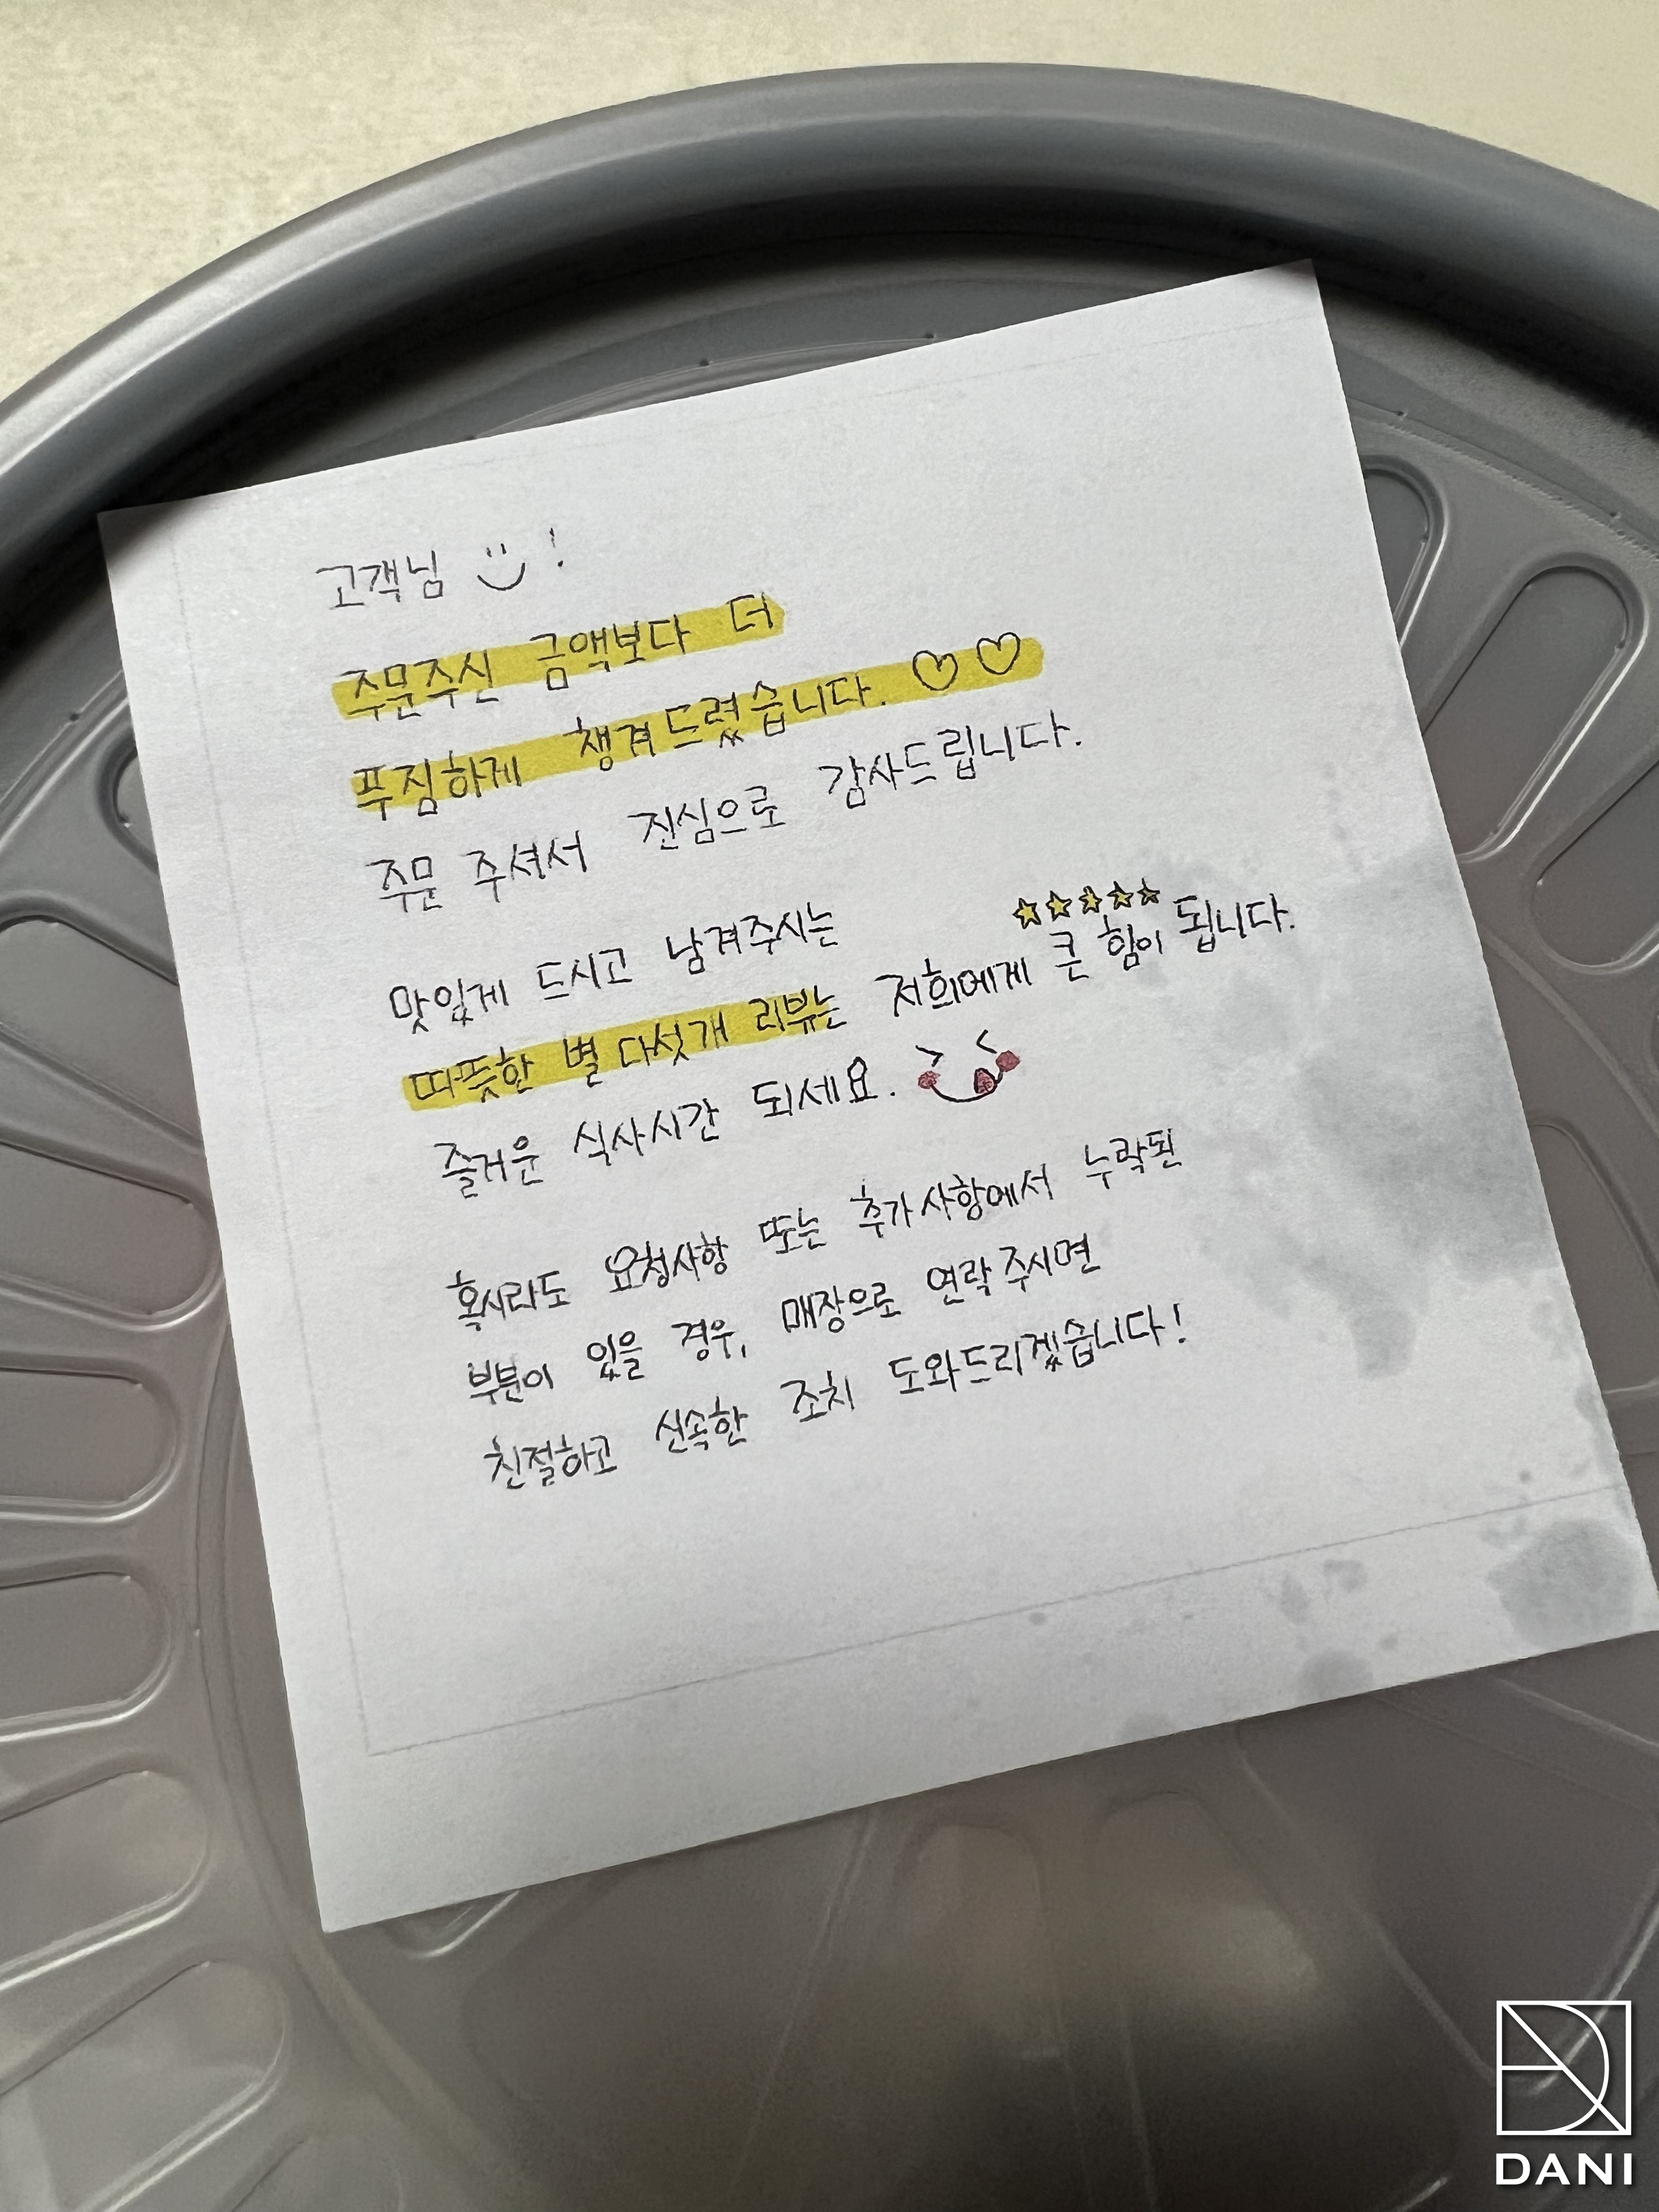 고객님 !
주문주신 금액보다 더
푸짐하게 챙겨드렸습니다. ♡♡
주문 주셔서 진심으로 감사드립니다.
맛있게 드시고 남겨주시는
★★★★★
따뜻한 별 다섯개 리뷰는 저희에게 큰 힘이 됩니다.
즐거운 식사시간 되세요.
혹시라도 요청사항 또는 추가사항에서 누락된
부분이 있을 경우, 매장으로 연락주시면
친절하고 신속한 조치 도와드리겠습니다!
DANI